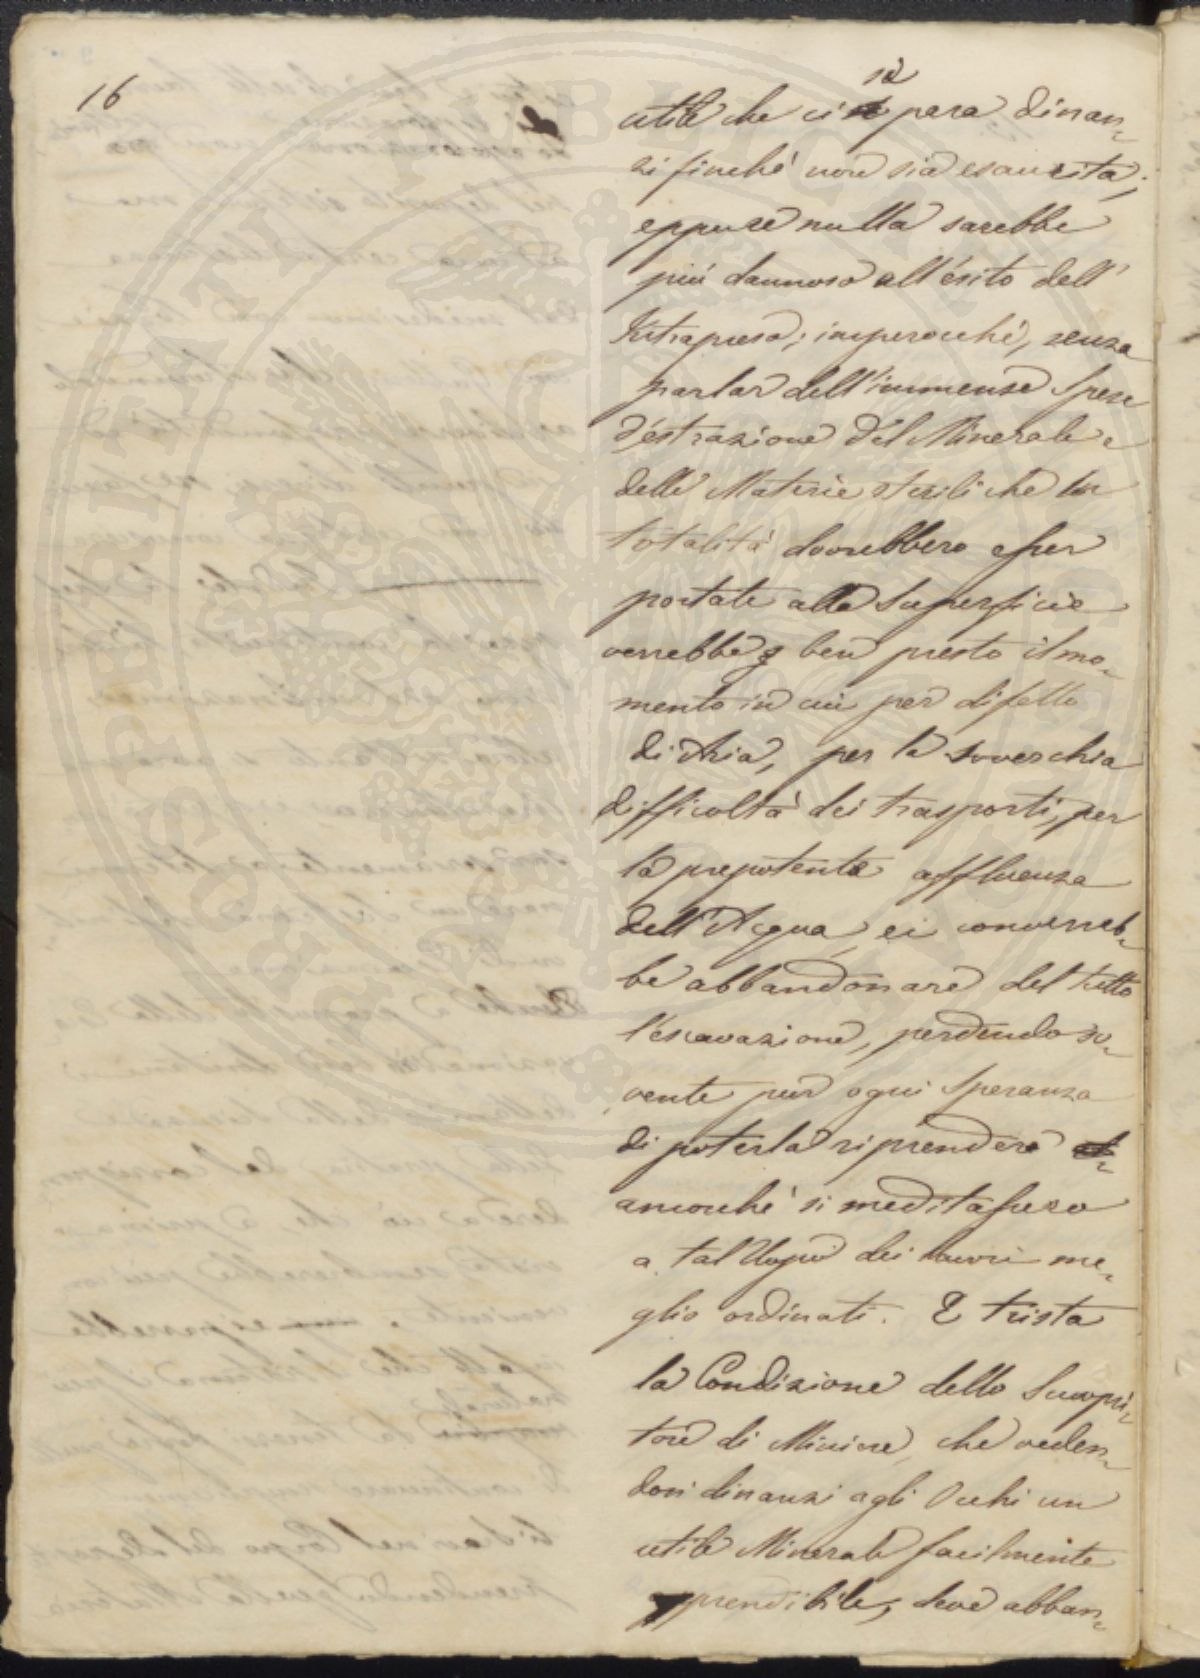 16
si
utile che ci para dinan-
zi finché non sia esaurita;
eppure nulla sarebbe
più dannoso all'esito dell'
Intrapresa; imperocché, senza
parlar dell'immense Spese
d'estrazione del Minerale e
delle Materie sterili che in
totalità dovrebbero esser
portate alla Superficie
verrebbe ben presto il mo-
mento in cui per difetto
di Aria, per la soverchia
difficoltà dei trasporti, per
la prepotente affluenza
dell'Acqua, ci converreb-
be abbandonare del tutto
l'escavazione, perdendo so-
vente pur ogni Speranza
di poterla riprendere
ancorché si meditassero
a tal Uopo dei lavori me-
glio ordinati. È trista
la Condizione dello Scuopri-
tore di Minine, che veden-
dosi dinanzi agli Occhi un
utile Minerale facilmente
prendibile, deve abban-